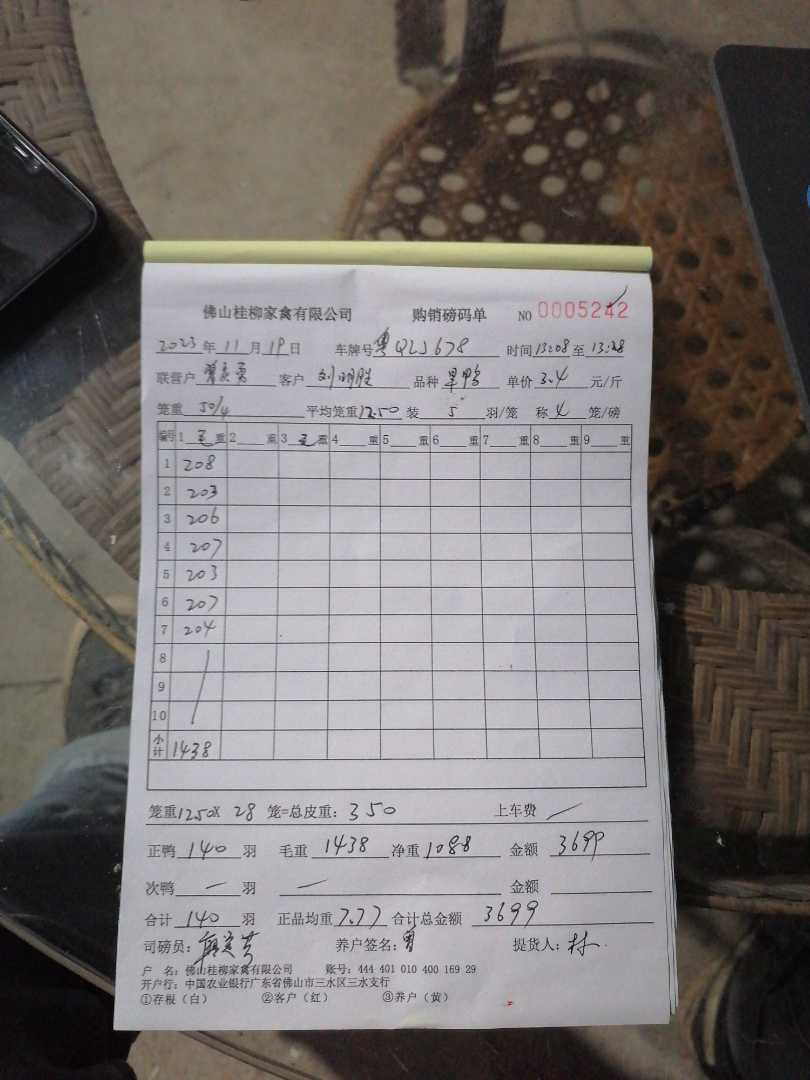 佛山桂柳家禽有限公司 购销磅码单 NO 0005242
2023年11月19日 车牌号粤QLJ678 时间13:08至13:28
联营户 客户 刘明胜 品种 单价3.4元/斤
笼重 50/4 平均笼重12.50装 5 羽/笼 称4笼/磅
编号 1 毛 重 2 重 3 毛 重 4 重 5 重 6 重 7 重 8 重 9 重
1 208
2 203
3 206
4 207
5 203
6 207
7 204
8
9
10
小计 1438
笼重1250X 28 笼=总皮重:350 上车费 /
正鸭 140 羽 毛重 1438 净重 1088 金额 3699
次鸭 — 羽 — 金额
合计 140 羽 正品均重7.77 合计总金额 3699
司磅员: 养户签名: 提货人:林
户 名:佛山桂柳家禽有限公司 账号:444 401 010 400 169 29
开户行:中国农业银行广东省佛山市三水区三水支行
①存根(白) ②客户(红) ③养户(黄)